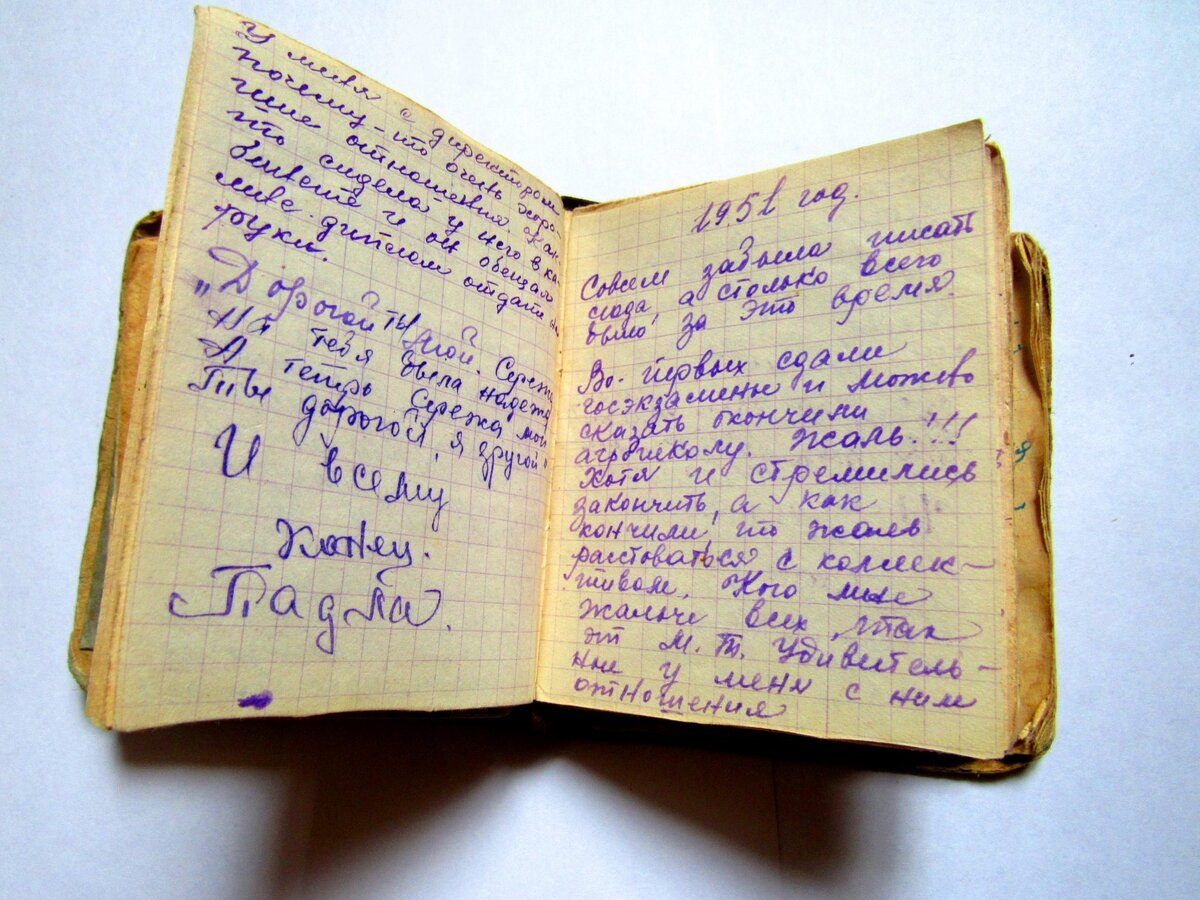 У меня с директором
почему-то очень хоро-
шие отношения. Как-
то сидела у него в ка-
бинете и он обещал
мне диплом отдать на
руки.
„Дорогой ты мой Сережа
На тебя была надежда
А тепрь Сережа мой
Ты дорогой, я другой"
И всему
конец.
Тадла.
1951 год.
Совсем забыла писать
сюда, а столько всего
было за это время.
Во-первых сдали
госэкзамены и можно
сказать окончили
агрошколу. Жаль!!!
Хотя и стремились
закончить, а как
кончили, то жаль
расстоваться с коллек-
тивом. Кого мне
жальче всех, так
эт М. Т. Удивитель-
ные у меня с ним
отношения